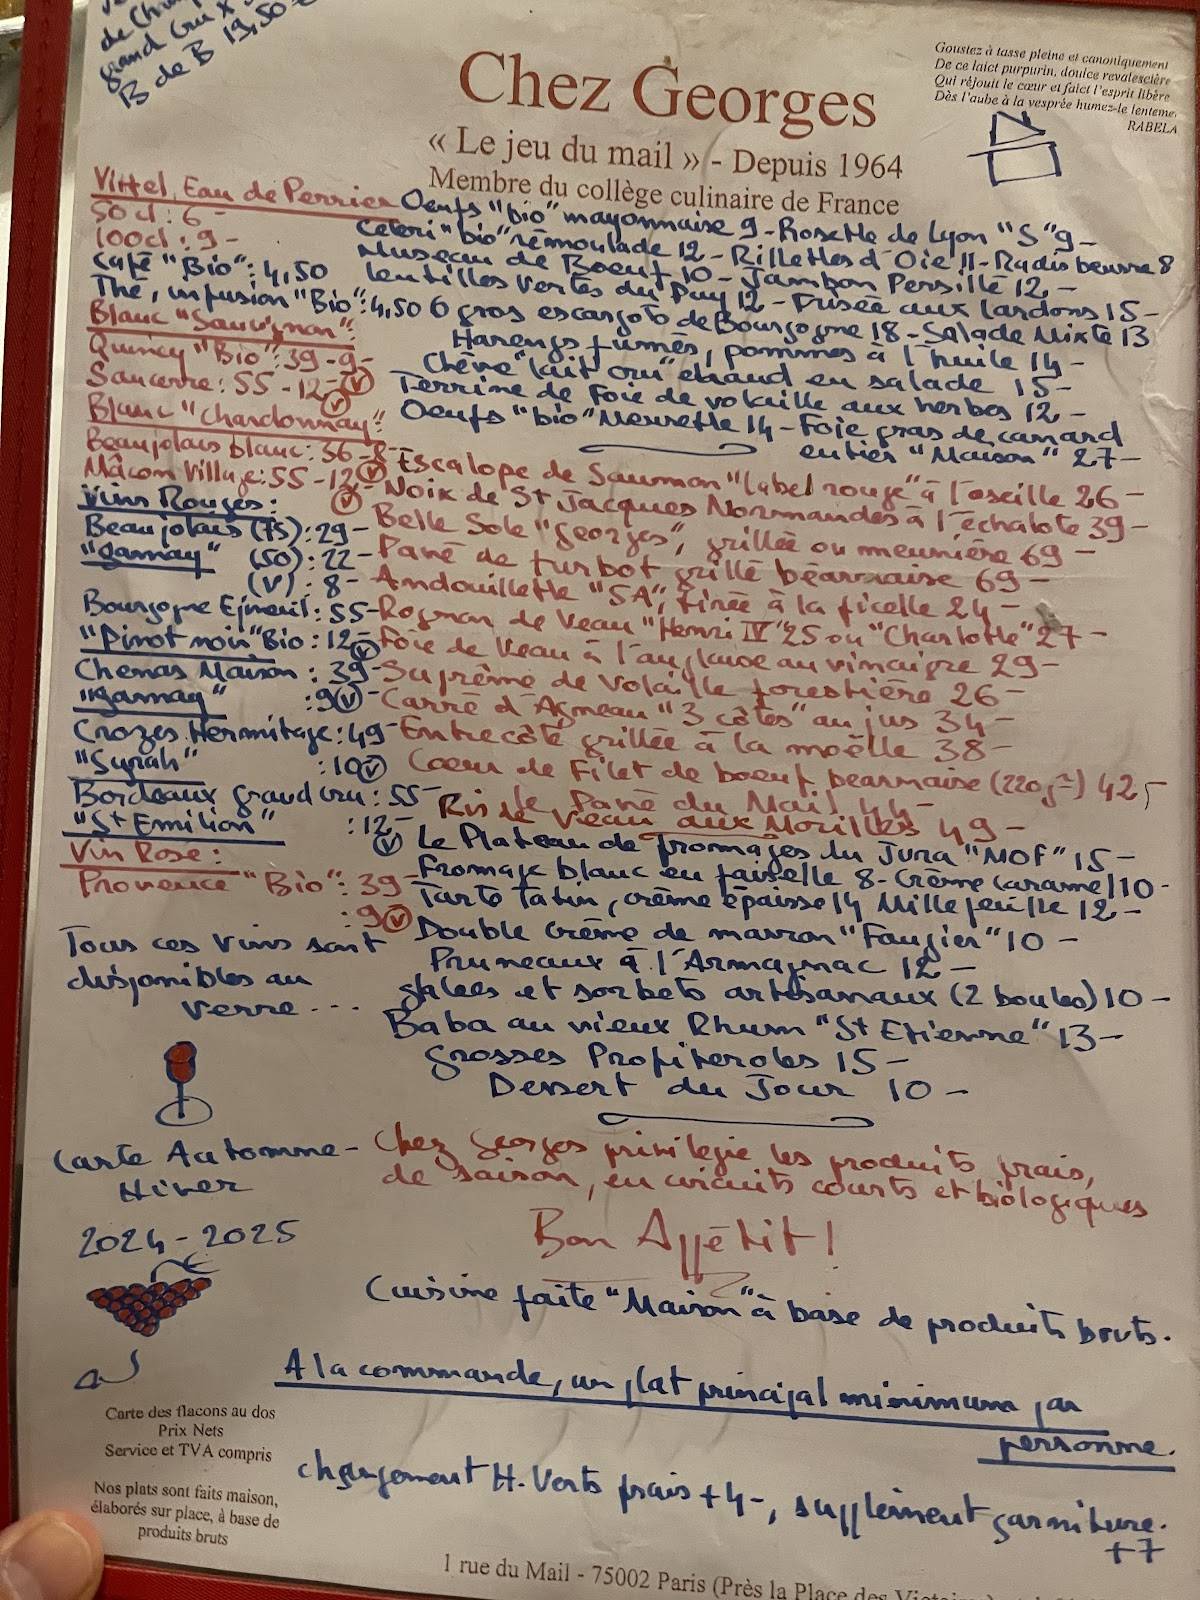 de Cham
grand Cru x
B de B 19,50 €
Goustez à tasse pleine et canoniquement
De ce laict purpurin, doulce revalescière
Qui réjouit le cœur et faict l'esprit libère
Dès l'aube à la vesprée humez-le lenteme
RABELA
Chez Georges
« Le jeu du mail » - Depuis 1964
Membre du collège culinaire de France
Vittel, Eau de Perrier
50 cl : 6 -
100cl : 9 -
Café "Bio" : 4,50
Thé, infusion "Bio" : 4,50
Blanc "Sauvignon" :
Quincy "Bio" : 39 - 9 -
Sancerre : 55 - 12 - V
V
Blanc "Chardonnay" :
Beaujolais blanc : 36 - 8 -
Mâcon Village : 55 - 12 - V
V
Vins Rouges :
Beaujolais (75) : 29 -
"Gamay" (50) : 22 -
(V) : 8 -
Bourgogne Epineuil : 55 -
"Pinot noir" Bio : 12 - V
Chenas Maison : 39 -
"Gamay" : 9 V -
Crozes Hermitage : 49 -
"Syrah" : 10 V
Bordeaux grand cru : 55 -
"St Emilion" : 12 -
V
Vin Rosé :
Provence "Bio" : 39 -
: 9 V
Tous ces vins sont
disponibles au
verre ...
Oeufs "bio" mayonnaise 9 - Rosette de Lyon "S" 9 -
Céleri "bio" rémoulade 12 - Rillettes d'Oie 11 - Radis beurre 8
Museau de Boeuf 10 - Jambon Persillé 12, -
lentilles vertes du Puy 12 - Frisée aux lardons 15 -
6 gros escargots de Bourgogne 18 - Salade Mixte 13
Harengs fumés, pommes à l'huile 14 -
Chèvre "lait cru" chaud en salade 15 -
Terrine de Foie de volaille aux herbes 12 -
Oeufs "bio" Meurette 14 - Foie gras de canard
entier "Maison" 27 -
Escalope de Saumon "label rouge" à l'oseille 26 -
Noix de St Jacques Normandes à l'échalote 39 -
Belle Sole "Georges", grillée ou meunière 69 -
Pavé de turbot grillé béarnaise 69 -
Andouillette "5A", tirée à la ficelle 24 -
Rognon de Veau "Henri IV" 25 ou "Charlotte" 27 -
Foie de Veau à l'anglaise au vinaigre 29 -
Suprême de Volaille forestière 26 -
Carré d'Agneau "3 côtes" au jus 34 -
Entrecôte grillée à la moëlle 38 -
Coeur de Filet de boeuf bearnaise (220gr) 42, -
le Pavé du Mail 44 -
Ris de Veau aux Morilles 49 -
Le Plateau de fromages du Jura "MOF" 15 -
Fromage blanc en faisselle 8 - Crème Caramel 10 -
Tarte Tatin, crème épaisse 14 Millefeuille 12 -
Double Crème de marron "Faugier" 10 -
Pruneaux à l'Armagnac 12 -
glaces et sorbets artisanaux (2 boules) 10 -
Baba au vieux Rhum "St Etienne" 13 -
Grosses Profiteroles 15 -
Dessert du Jour 10 -
Carte Automne -
Hiver
2024 - 2025
Chez Georges privilégie les produits frais,
de saison, en circuits courts et biologiques
Bon Appétit !
Cuisine faite "Maison" à base de produits bruts.
A la commande, un plat principal minimum par
personne.
changement H. Verts frais + 4 -, supplément garniture.
+ 7
Carte des flacons au dos
Prix Nets
Service et TVA compris
Nos plats sont faits maison,
élaborés sur place, à base de
produits bruts
1 rue du Mail - 75002 Paris (Près la Place des